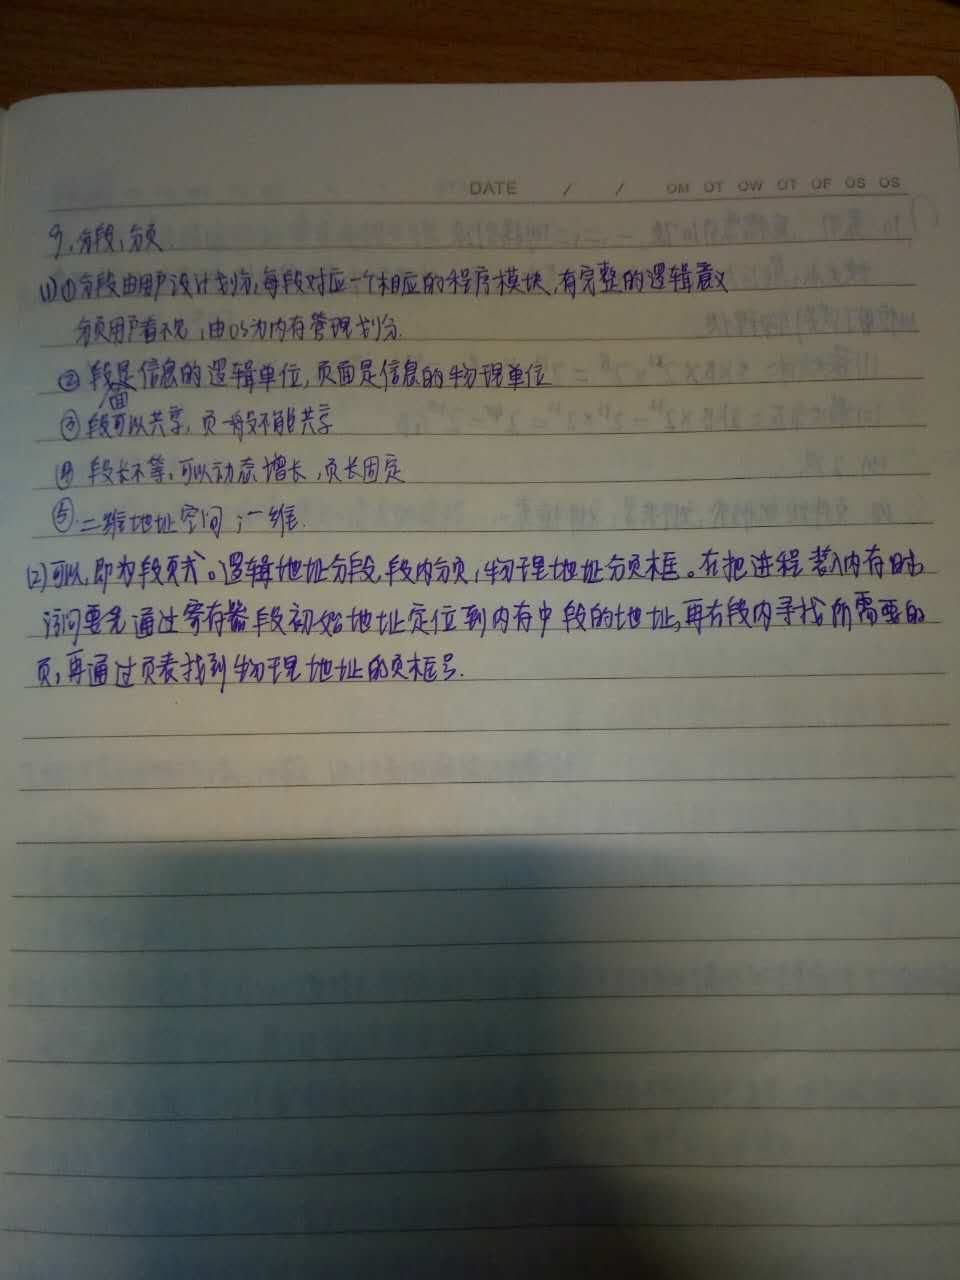 DATE / / OM OT OW OT OF OS OS
9、分段、分页
(1)①分段由用户设计划分,每段对应一个相应的程序模块,有完整的逻辑意义
分页用户看不见,由OS为内存管理划分.
②段是信息的逻辑单位,页面是信息的物理单位
③段可以共享,页面一般不能共享
④段长不等,可以动态增长,页长固定
⑤.二维地址空间;一维.
(2)可以,即为段页式。逻辑地址分段,段内分页,物理地址分页框。在把进程装入内存时,
访问要先通过寄存器段初始地址定位到内存中段的地址,再在段内寻找所需要的
页,再通过页表找到物理地址的页框号.